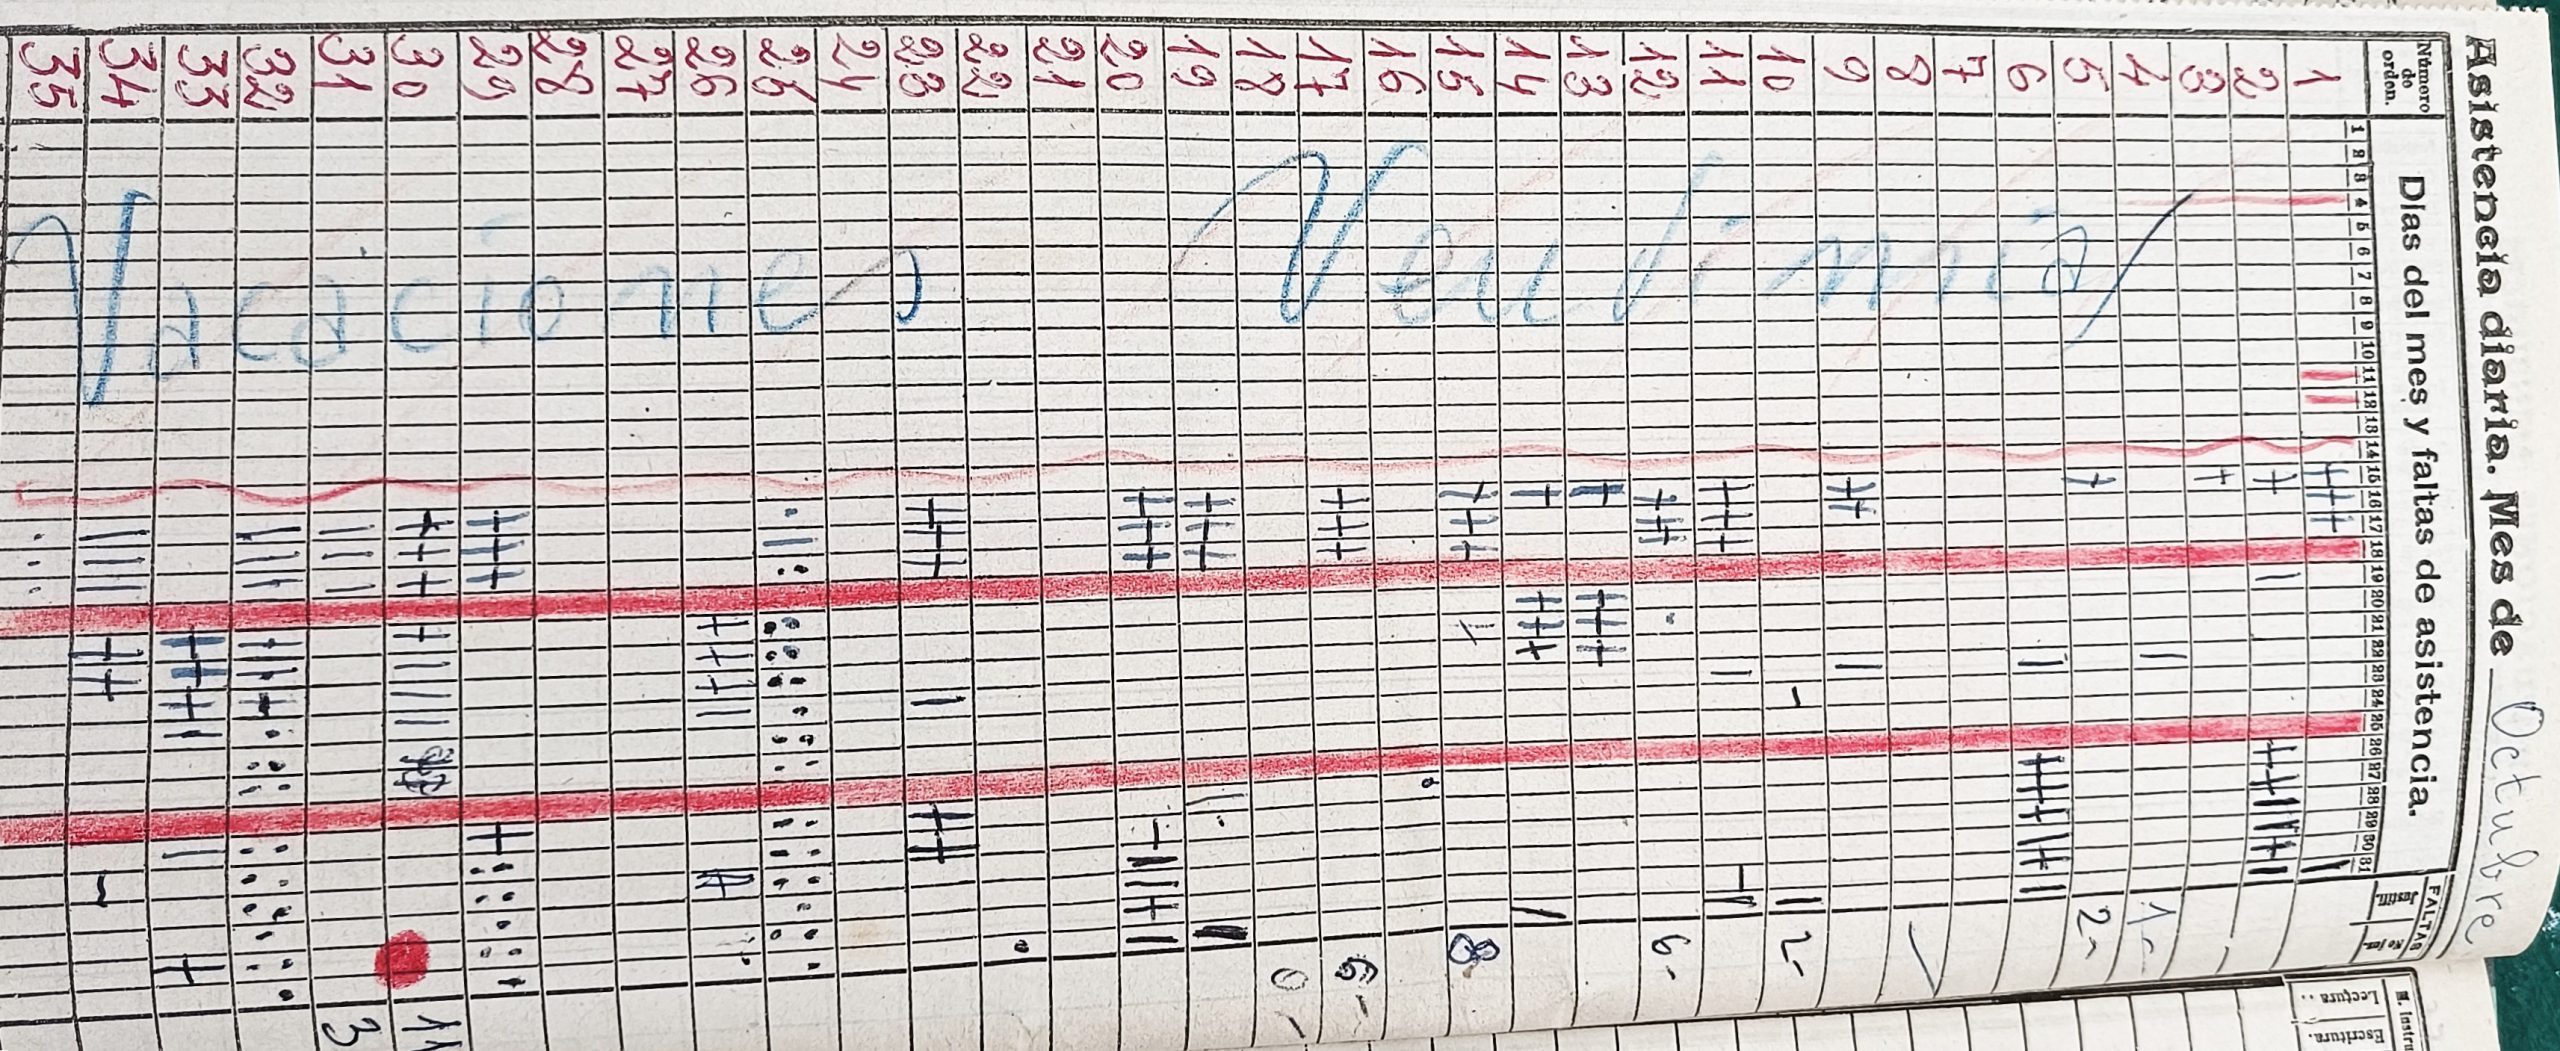 Asistencia diaria. Mes de Octubre
Número de orden.
Días del mes y faltas de asistencia.
FALTAS
Justifi.
No jus.
1 2 3 4 5 6 7 8 9 10 11 12 13 14 15 16 17 18 19 20 21 22 23 24 25 26 27 28 29 30 31
1
2
3
4 1-
5 2-
6
7
8
9
10 2-
11
12 6-
13
14
15 8
16
17 6-
18 0-
19
20
21
22
23
24
25
26
27
28
29
30 11
31 3
32
33
34
35
Vacaciones Vendimia
Lectura..
Escritura.